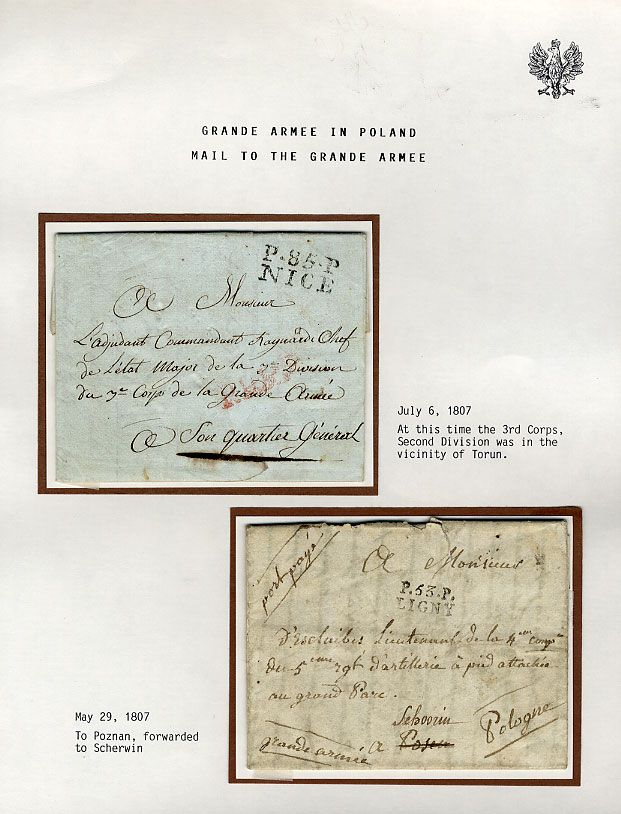 GRANDE ARMEE IN POLAND
MAIL TO THE GRANDE ARMEE
P.85.P
NICE
A Monsieur
L'adjudant Commandant Raynardi Chef
de L'état Major de la 3me Division
du 3me Corps de la Grande Armée
A Son quartier Général
July 6, 1807
At this time the 3rd Corps,
Second Division was in the
vicinity of Torun.
port payé
A Monsieur
P.53.P.
LIGNY
D'Esclaibes Lieutenant de la 4eme Compie
du 5eme rgt d'artillerie à pied attachée
au grand Parc.
Schoorin
grande armée a Posen Pologne
May 29, 1807
To Poznan, forwarded
to Scherwin